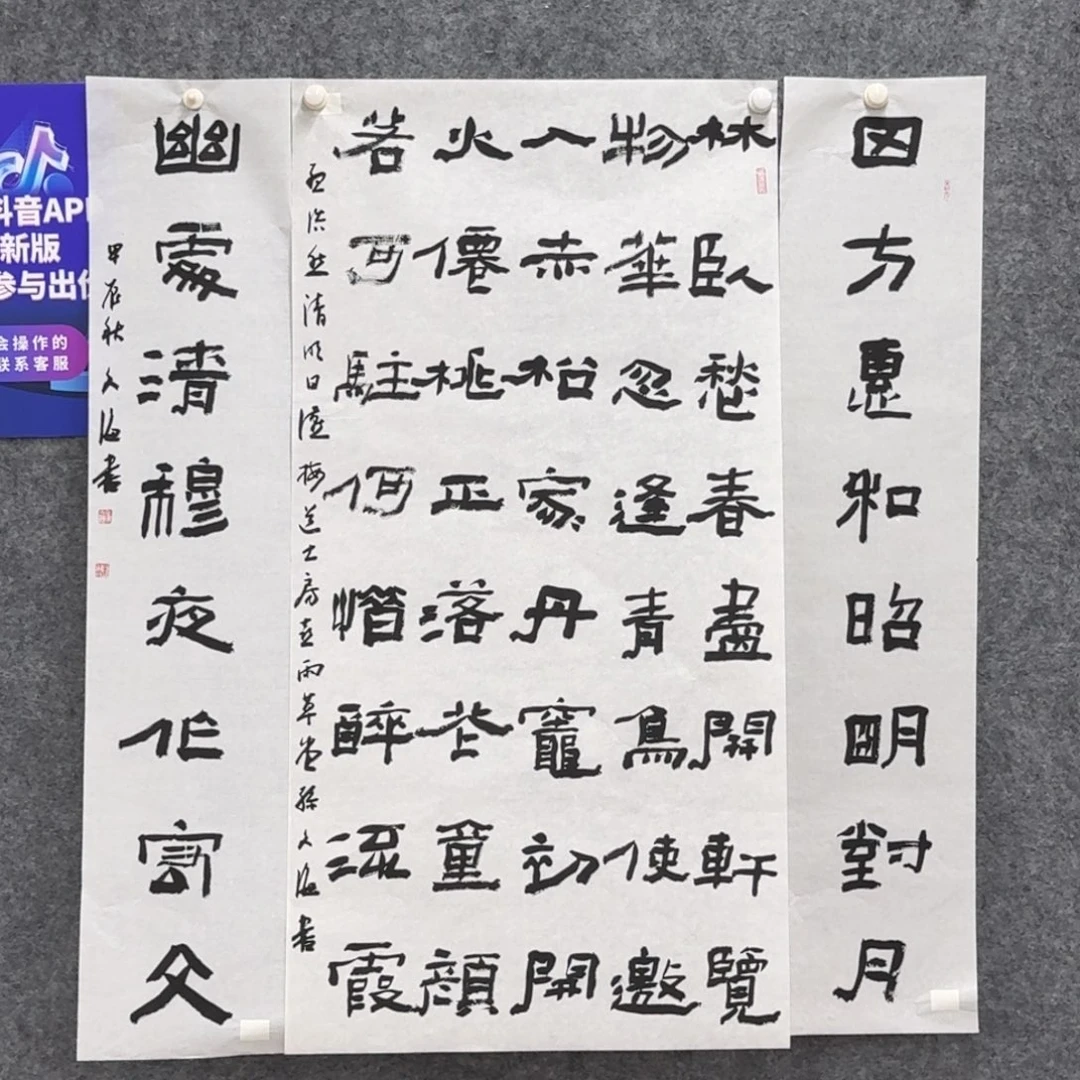 四方惠和昭明對月
林臥愁春盡開軒覽
物華忽逢青鳥使邀
入赤柗家丹竈初開
火僊桃正落花童顏
若可駐何惜醉流霞
孟浩然清明日宴梅道士房喜雨草堂孫文海書
幽處清穆夜作
甲辰秋文海書
抖音AP
新版
参与出价
会操作的
联系客服